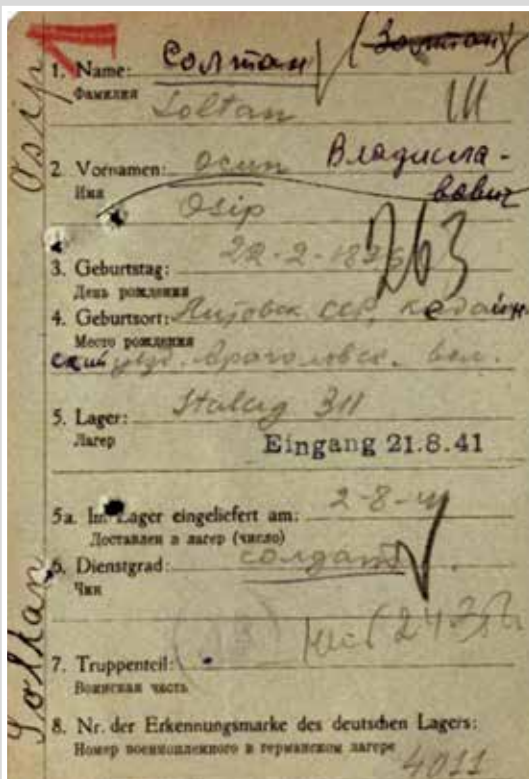 Osip
1. Name: Солтан (Золтан)
Фамилия
Soltan III
2. Vornamen: Осип Владисла-
Имя вович
Osip
263
3. Geburtstag: 22-2-18
День рождения
4. Geburtsort: Литовск. ССР, Кедайн-
Место рождения
ский уезд. вол.
5. Lager: Stalag 311
Лагер Eingang 21.8.41
5a. Im Lager eingeliefert am: 2-8-41
Доставлен в лагер (число)
6. Dienstgrad: солдат
Чин
7. Truppenteil:
Воинская часть
8. Nr. der Erkennungsmarke des deutschen Lagers:
Номер военнопленного в германском лагере
4011
Soltan